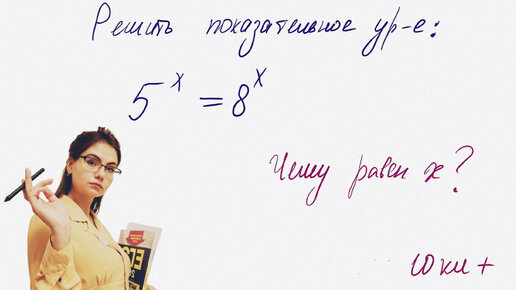 Решить показательное ур-е:
5^x = 8^x
Чему равен x?
10 кл +